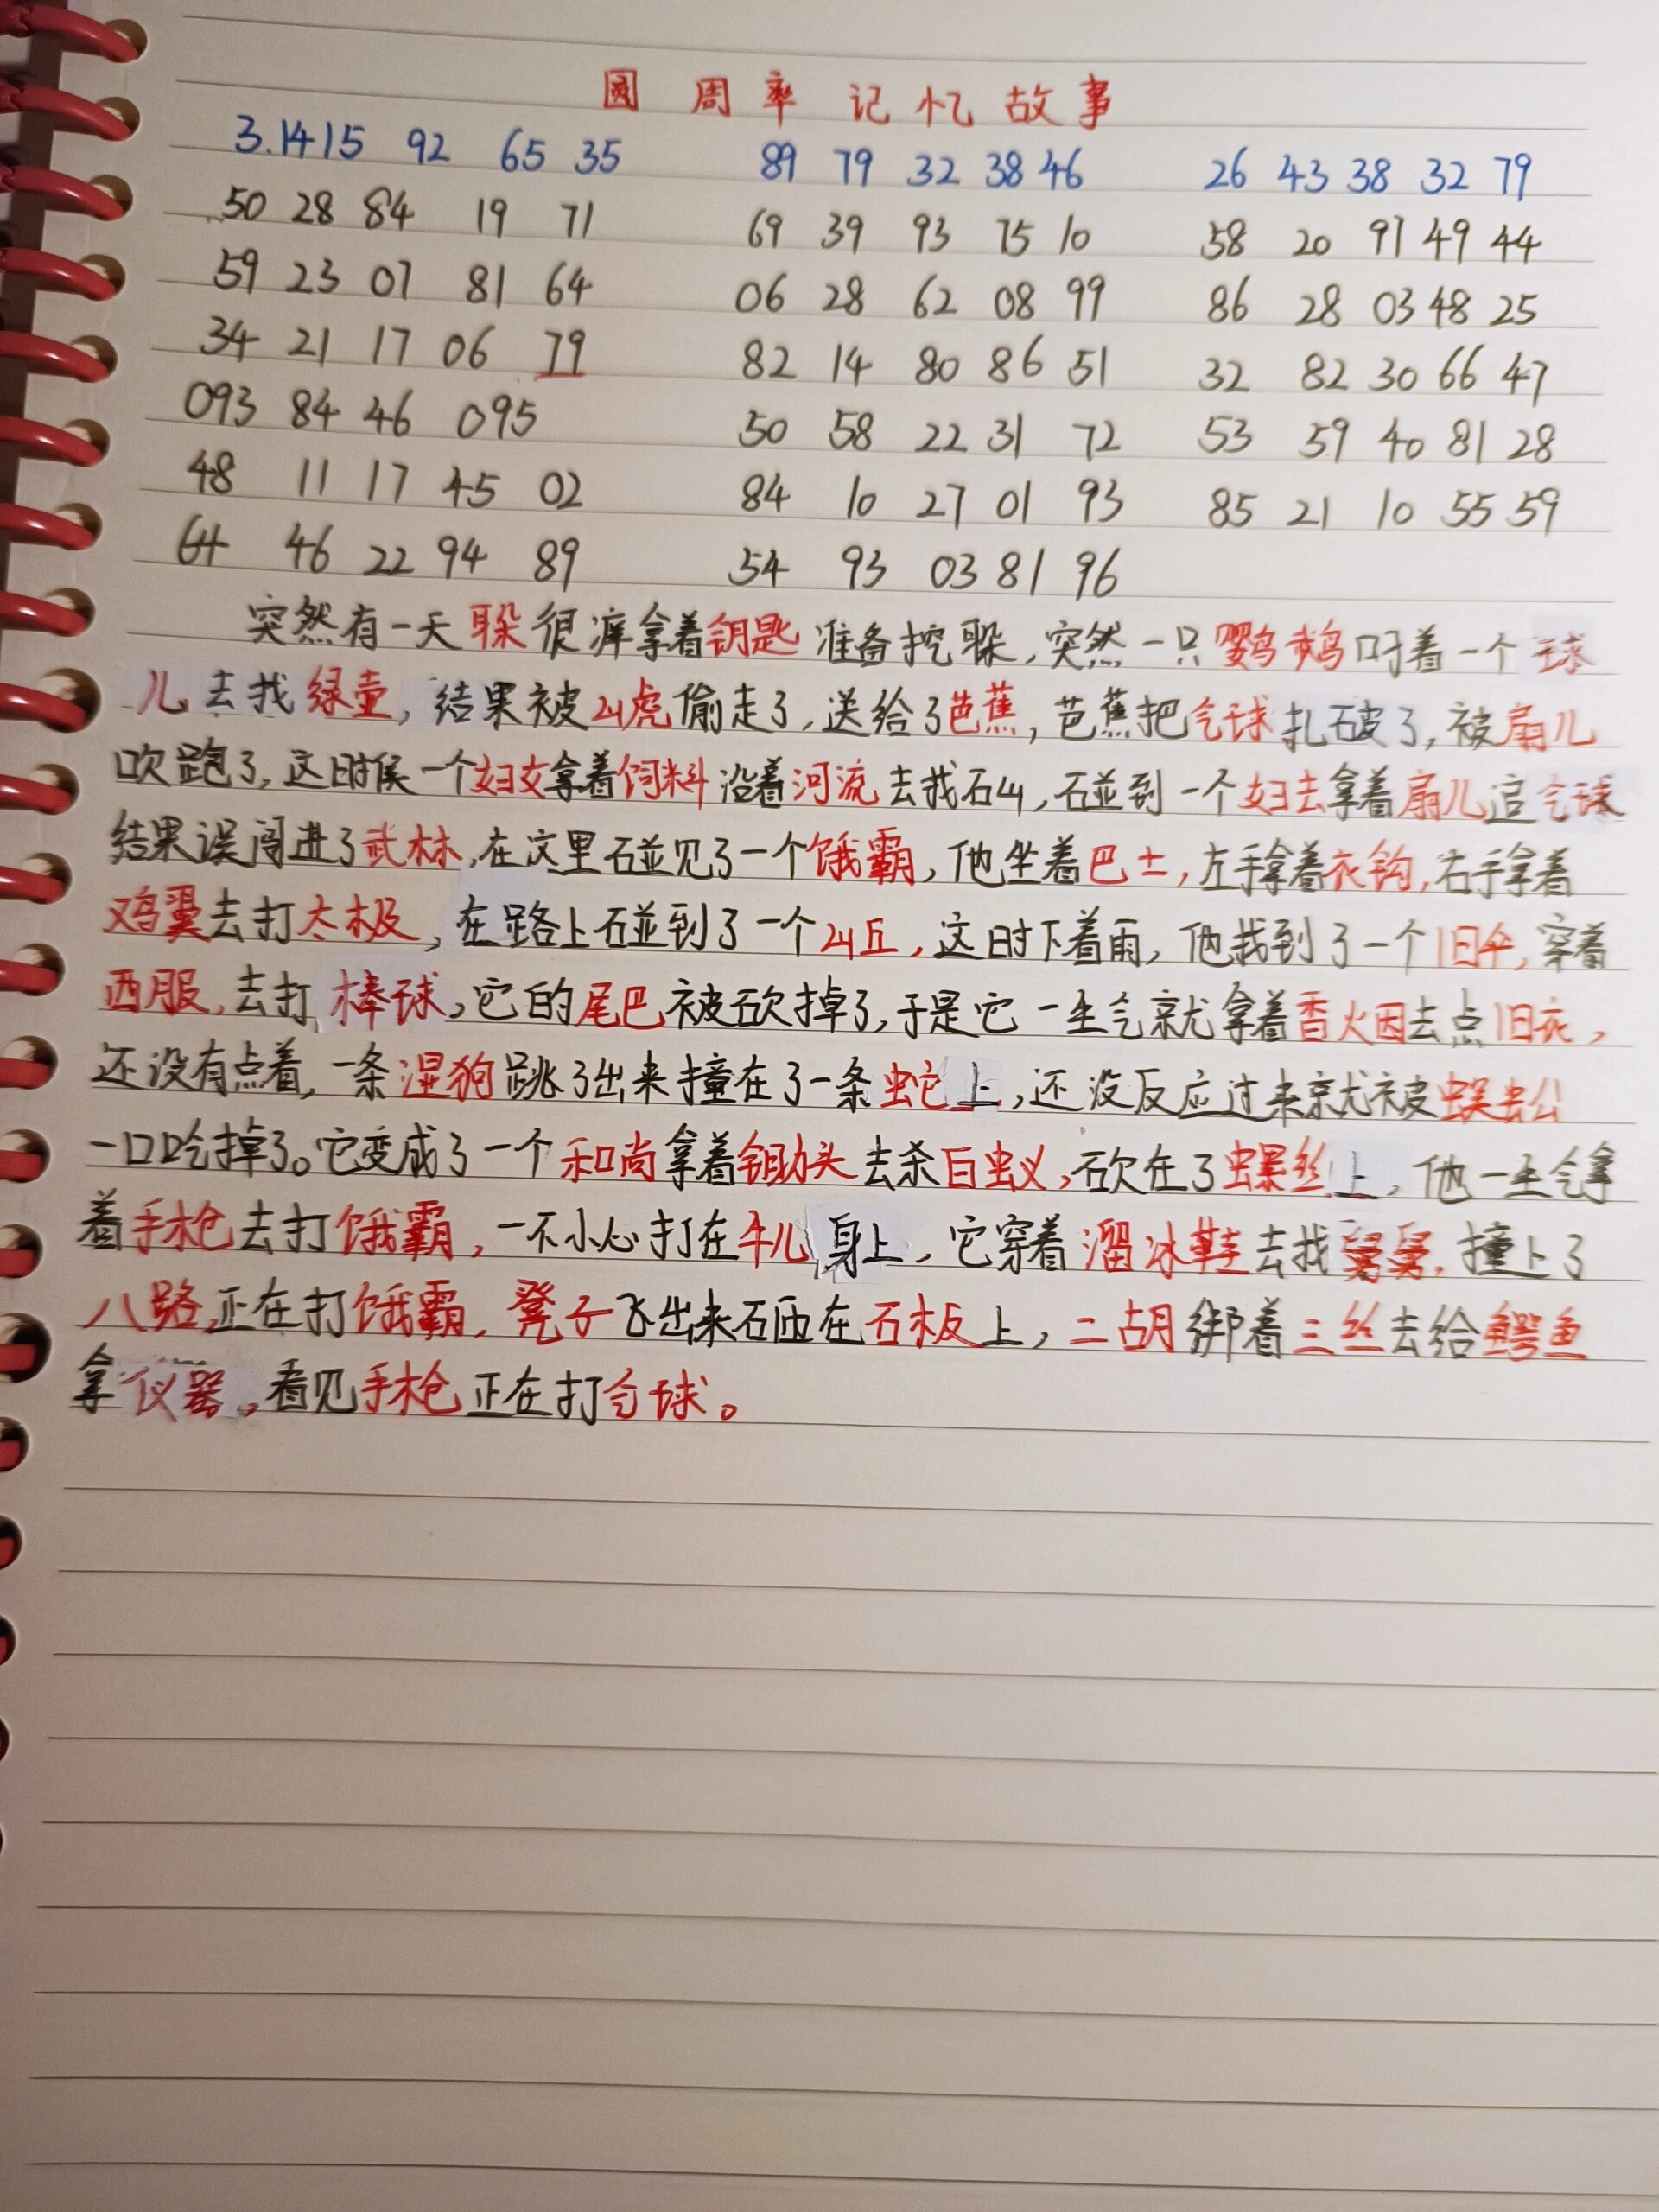 圆周率记忆故事
3.1415 92 65 35 89 79 32 38 46 26 43 38 32 79
50 28 84 19 71 69 39 93 75 10 58 20 97 49 44
59 23 07 81 64 06 28 62 08 99 86 28 03 48 25
34 21 17 06 79 82 14 80 86 51 32 82 30 66 47
093 84 46 095 50 58 22 31 72 53 59 40 81 28
48 11 17 45 02 84 10 27 01 93 85 21 10 55 59
64 46 22 94 89 54 93 03 81 96
突然有一天 很痒拿着钥匙准备挖 ,突然一只鹦鹉叼着一个球
儿去找绿壶,结果被山虎偷走了,送给了芭蕉,芭蕉把气球扎破了,被扇儿
吹跑了,这时候一个妇女拿着饲料沿着河流去找石山,碰到一个妇去拿着扇儿追气球
结果误闯进了武林,在这里碰见了一个饿霸,他坐着巴士,左手拿着衣钩,右手拿着
鸡翼去打太极,在路上碰到了一个山丘,这时下着雨,他找到了一个旧伞,穿着
西服,去打棒球,它的尾巴被砍掉了,于是它一生气就拿着香火因去点旧衣,
还没有点着,一条湿狗跳了出来撞在了一条蛇上,还没反应过来就被蜈蚣公
一口吃掉了。它变成了一个和尚拿着锄头去杀白蚁,砍在了螺丝上,他一生气拿
着手枪去打饿霸,一不小心打在牛儿身上,它穿着溜冰鞋去找舅舅,撞上了
八路,正在打饿霸,凳子飞出来 在石板上,二胡绑着三丝去给鳄鱼
拿仪器,看见手枪正在打气球。